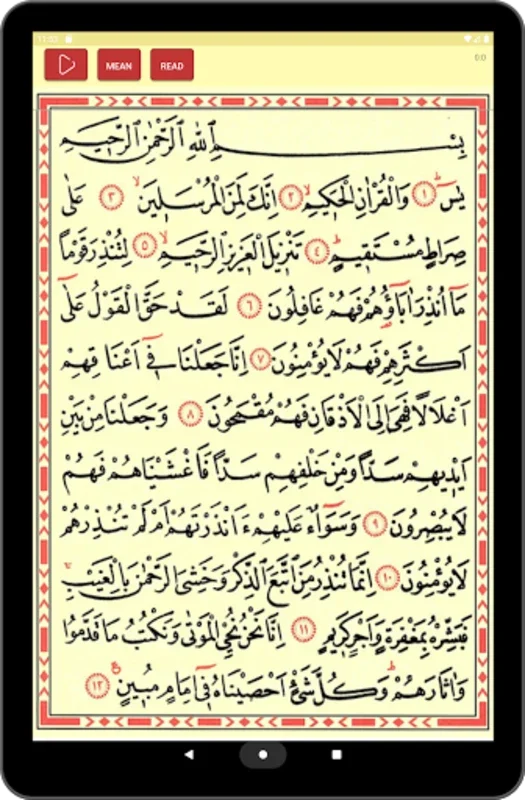 MEAN
READ
0:0
بِسْمِ اللّٰهِ الرَّحْمٰنِ الرَّحِيمِ
يٰسٓ ﴿١﴾ وَالْقُرْاٰنِ الْحَكِيمِۙ ﴿٢﴾ اِنَّكَ لَمِنَ الْمُرْسَلِينَۙ ﴿٣﴾ عَلٰى
صِرَاطٍ مُسْتَقِيمٍۜ ﴿٤﴾ تَنْزِيلَ الْعَزِيزِ الرَّحِيمِۙ ﴿٥﴾ لِتُنْذِرَ قَوْمًا
مَٓا اُنْذِرَ اٰبَٓاؤُ۬هُمْ فَهُمْ غَافِلُونَ ﴿٦﴾ لَقَدْ حَقَّ الْقَوْلُ عَلٰٓى
اَكْثَرِهِمْ فَهُمْ لَا يُؤْمِنُونَ ﴿٧﴾ اِنَّا جَعَلْنَا فِٓي اَعْنَاقِهِمْ
اَغْلَالًا فَهِيَ اِلَى الْاَذْقَانِ فَهُمْ مُقْمَحُونَ ﴿٨﴾ وَجَعَلْنَا مِنْ بَيْنِ
اَيْدِيهِمْ سَدًّا وَمِنْ خَلْفِهِمْ سَدًّا فَاَغْشَيْنَاهُمْ فَهُمْ
لَا يُبْصِرُونَ ﴿٩﴾ وَسَوَٓاءٌ عَلَيْهِمْ ءَاَنْذَرْتَهُمْ اَمْ لَمْ تُنْذِرْهُمْ
لَا يُؤْمِنُونَ ﴿١٠﴾ اِنَّمَا تُنْذِرُ مَنِ اتَّبَعَ الذِّكْرَ وَخَشِيَ الرَّحْمٰنَ بِالْغَيْبِۚ
فَبَشِّرْهُ بِمَغْفِرَةٍ وَاَجْرٍ كَرِيمٍ ﴿١١﴾ اِنَّا نَحْنُ نُحْيِ الْمَوْتٰى وَنَكْتُبُ مَا قَدَّمُوا
وَاٰثَارَهُمْۜ وَكُلَّ شَيْءٍ اَحْصَيْنَاهُ فِٓي اِمَامٍ مُبِينٍ۟ ﴿١٢﴾